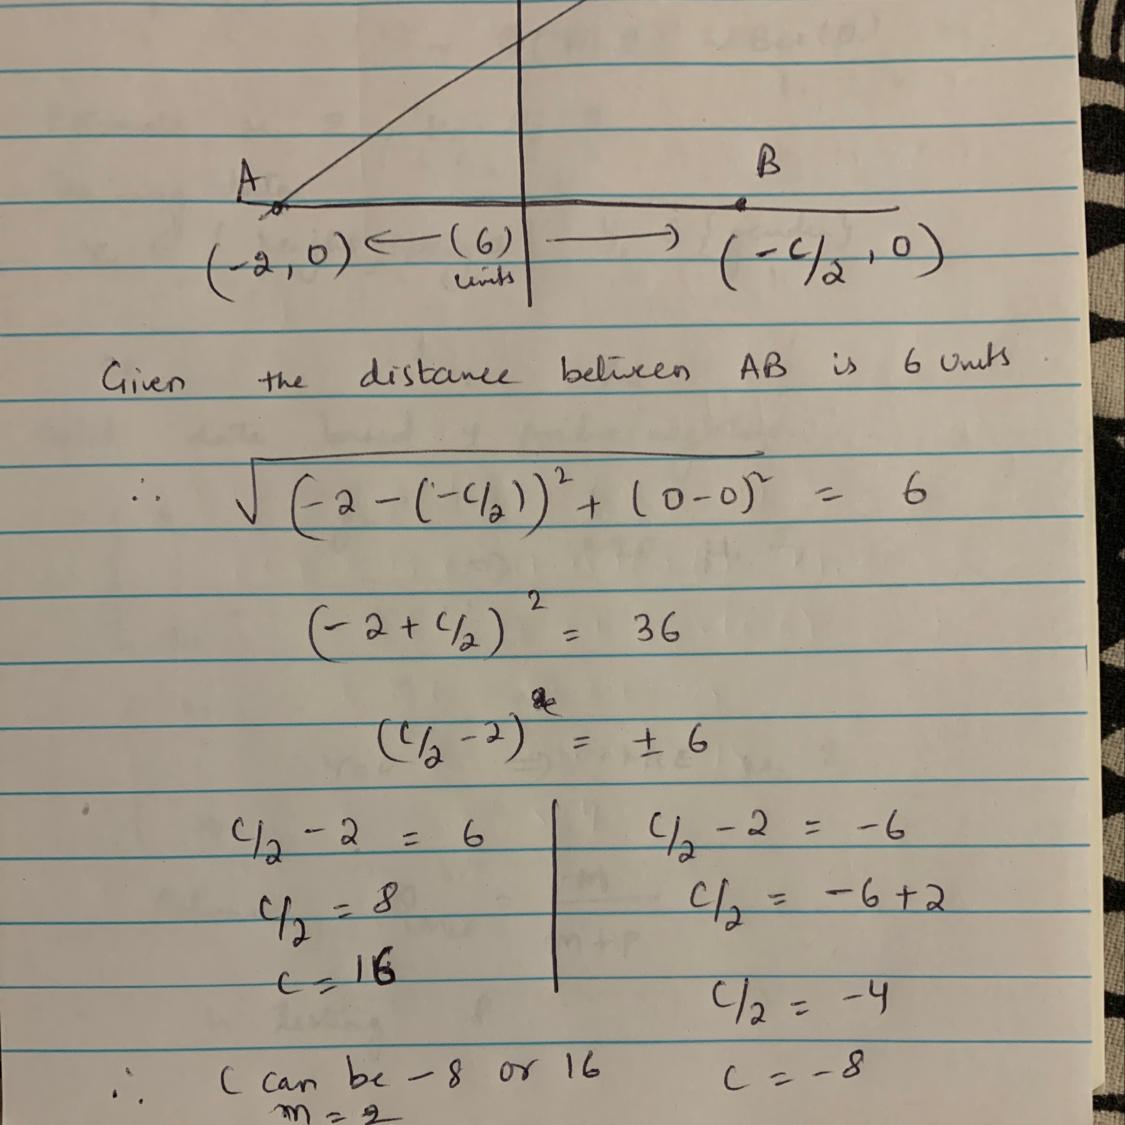 A B
(-2, 0) ← (6) units → (-c/2, 0)
Given the distance between AB is 6 units.
∴ √((-2-(-c/2))² + (0-0)²) = 6
(-2+c/2)² = 36
(c/2-2) = ± 6
c/2 - 2 = 6 | c/2 - 2 = -6
c/2 = 8 | c/2 = -6+2
c = 16 | c/2 = -4
∴ C can be -8 or 16 c = -8
m = 2